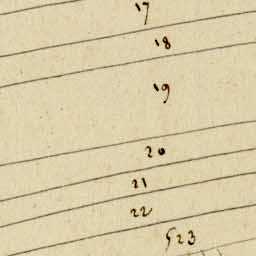 17
18
19
20
21
22
23